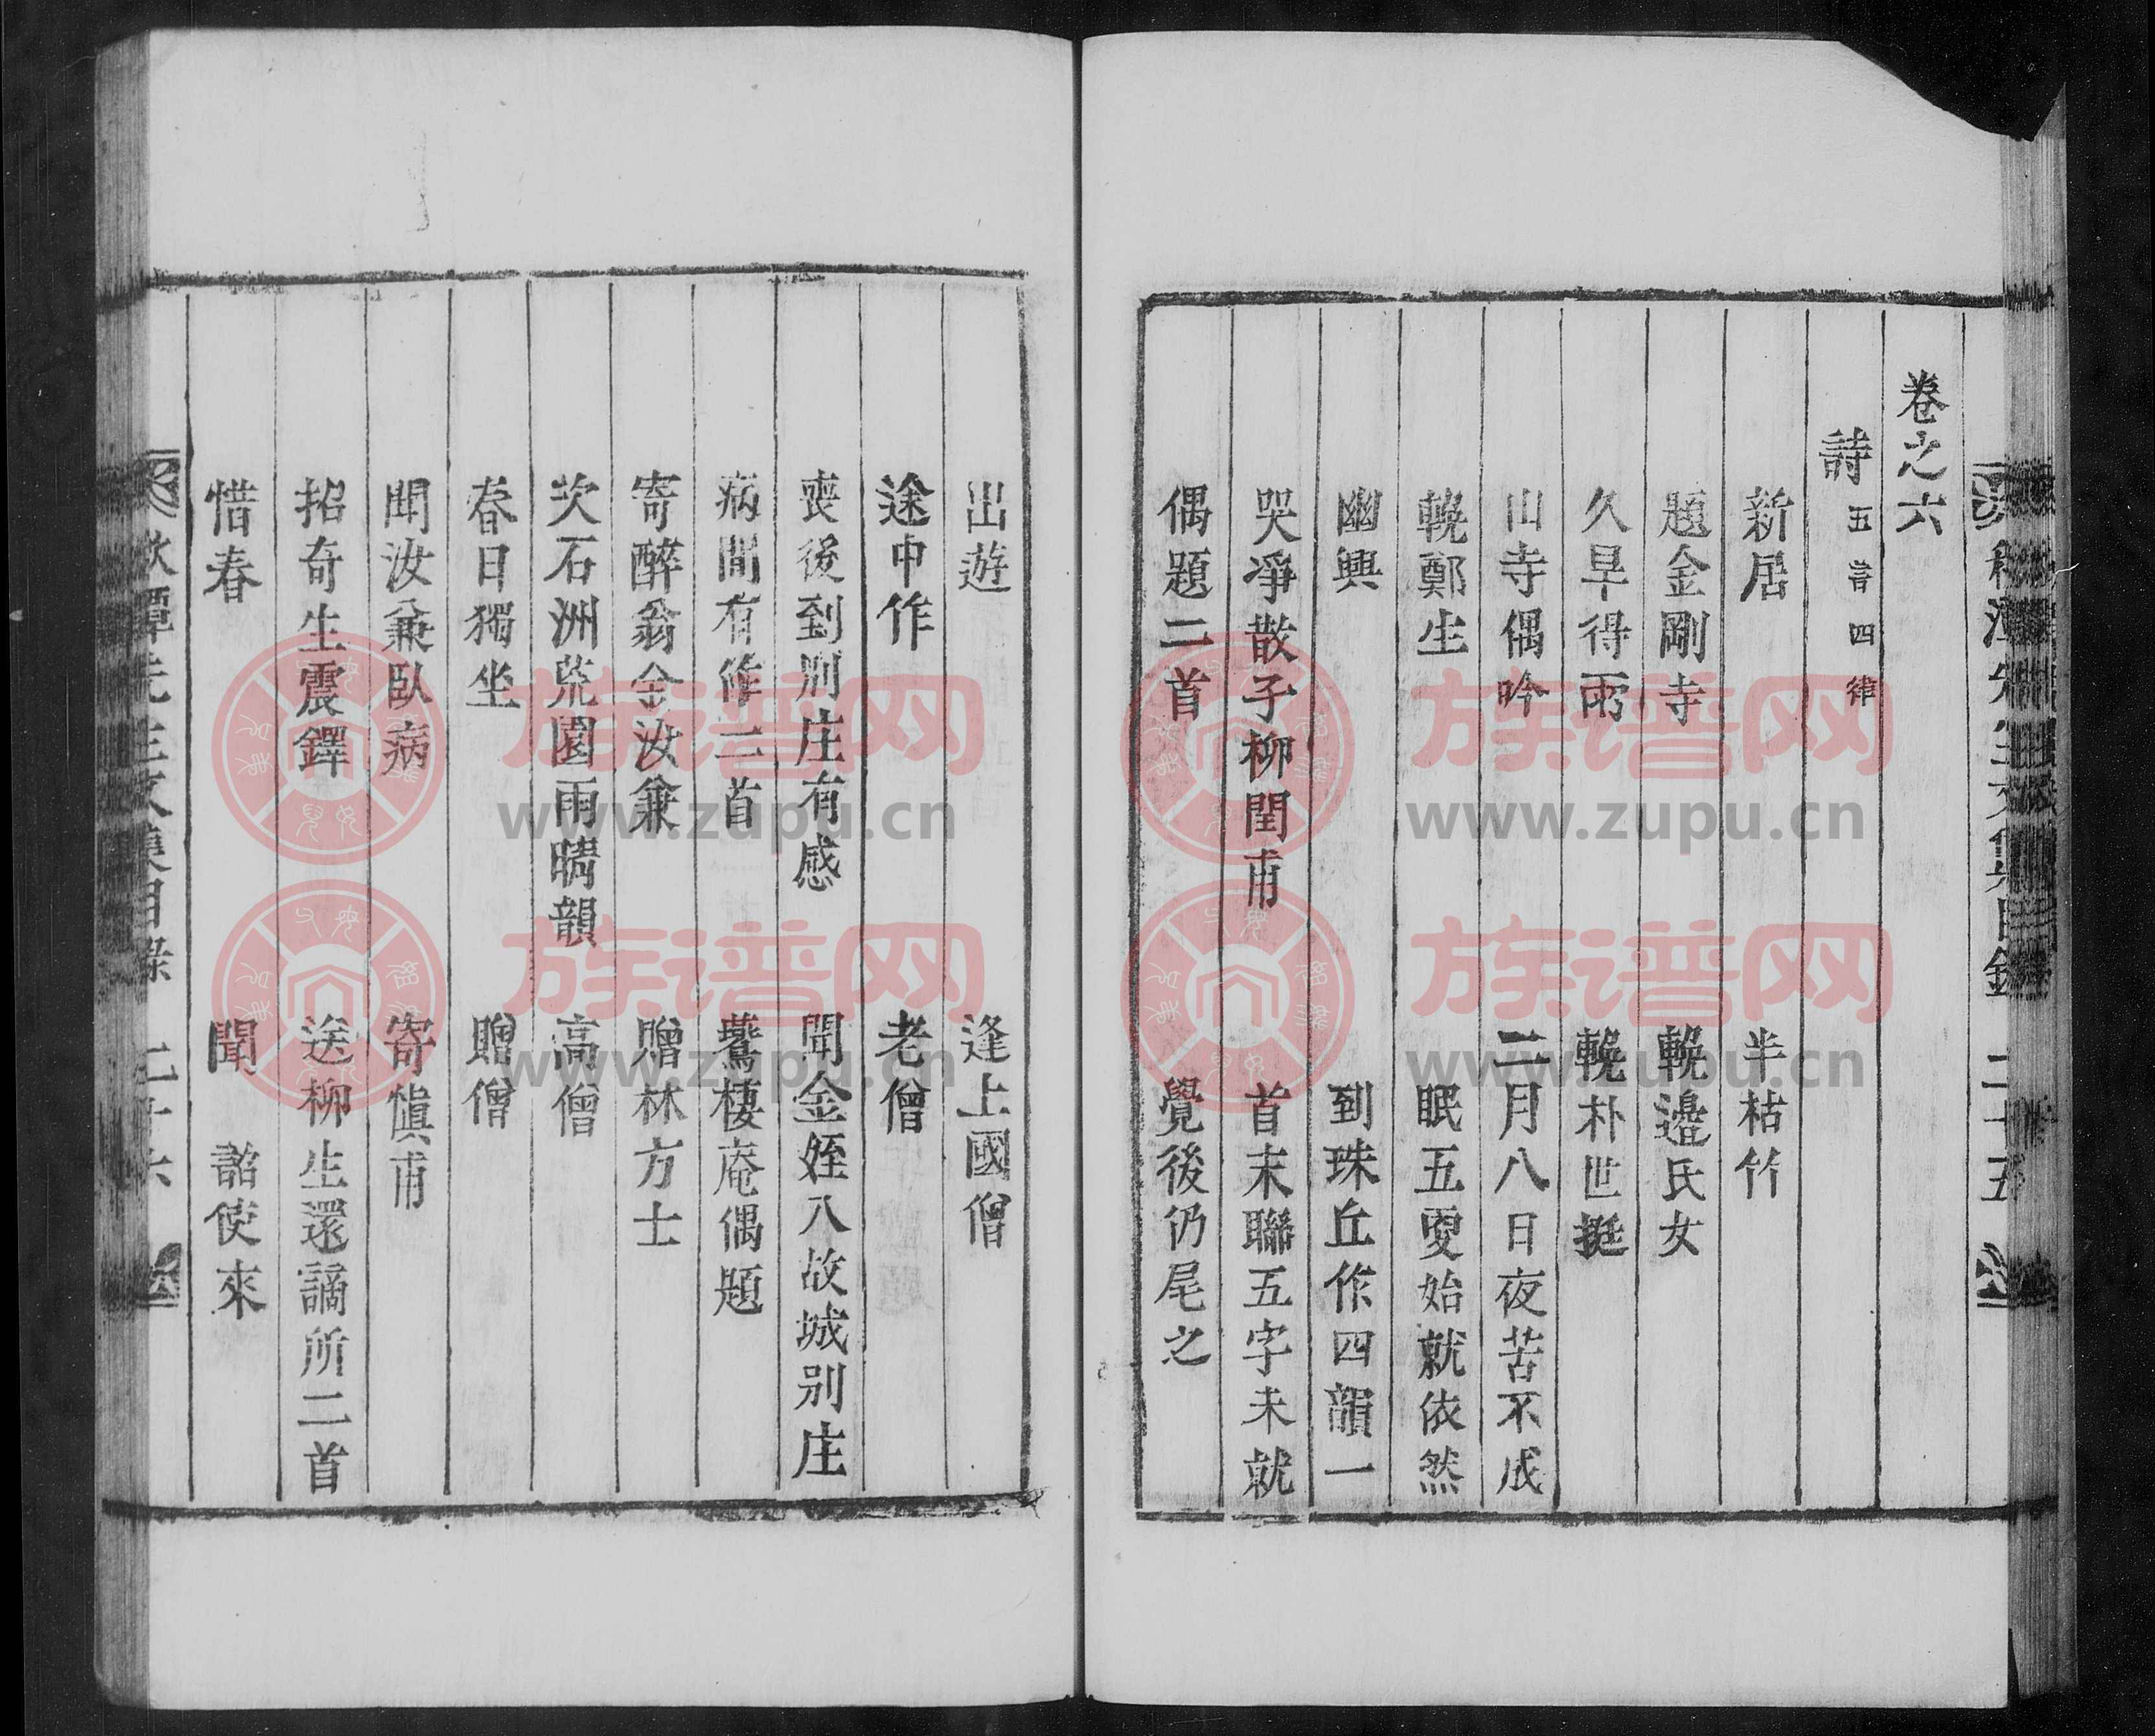 卷之六
詩 五言四律
新居 半枯竹
題金剛寺 輓邊氏女
久旱得雨 輓朴世挺
山寺偶吟 二月八日夜苦不成
輓鄭生 眠五更始就依然
幽興 到珠丘作四韻一
哭凈散子柳閏甫 首末聯五字未就
偶題二首 覺後仍尾之
出遊 逢上國僧
途中作 老僧
喪後到別庄有感 聞金姪入故城別庄
病間有作二首 鷰棲庵偶題
寄醉翁金汝兼 贈林方士
次石洲荒園雨晴韻 高僧
春日獨坐 贈僧
聞汝兼臥病 寄愼甫
招奇生震鐸 送柳生還謫所二首
惜春 聞 詔使來
秋潭先生文集目錄 二十六
族谱网
www.zupu.cn
族谱网
www.zupu.cn
族谱网
www.zupu.cn
族谱网
www.zupu.cn